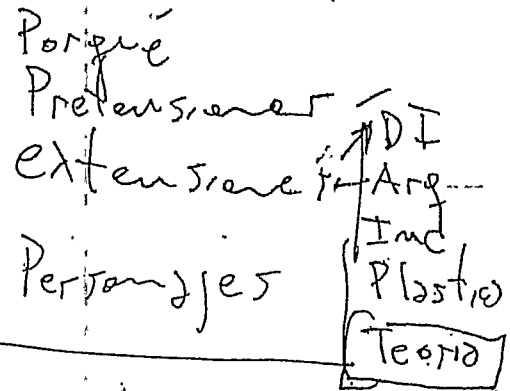 Porqué
Pretensiones
extensiones
Personajes
DI
Arq
Ind
Plastica
Teoria